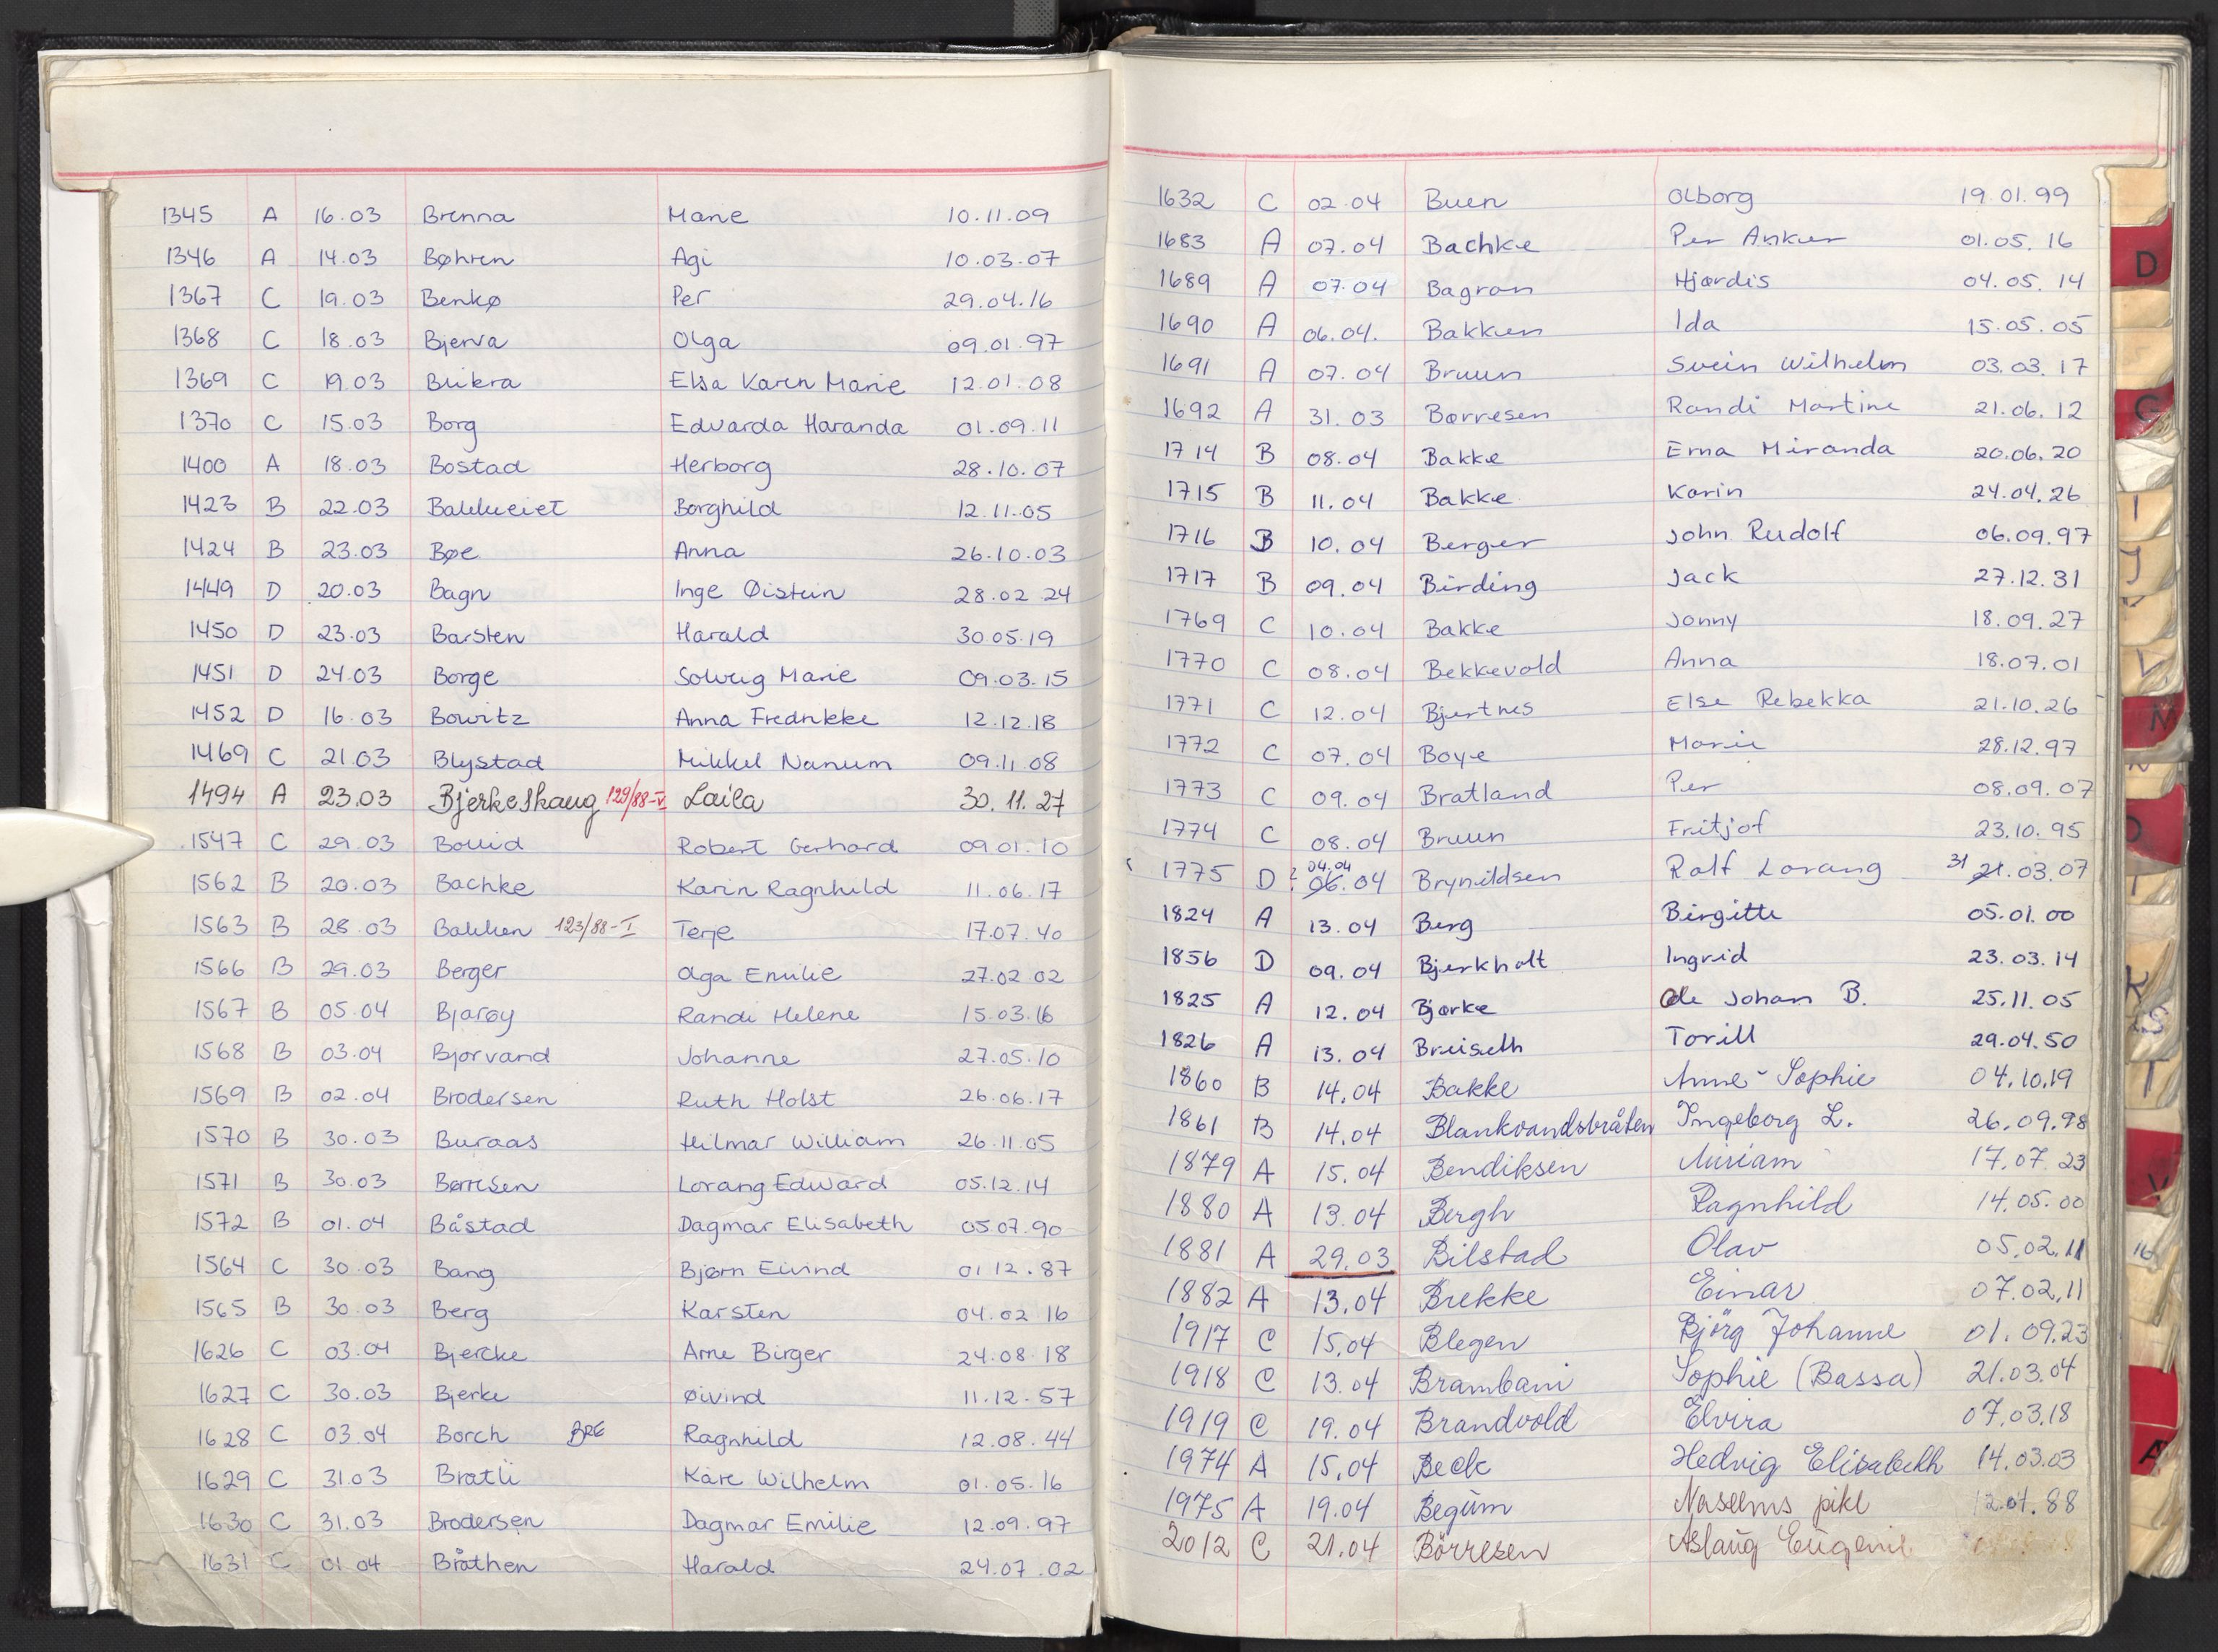 1345 A 16.03 Brenna Marie 10.11.09
1346 A 14.03 Bøhren Agi 10.03.07
1367 C 19.03 Benkø Per 29.04.16
1368 C 18.03 Bjerva Olga 09.01.97
1369 C 19.03 Elsa Karen Marie 12.01.08
1370 C 15.03 Borg Edvarda Haranda 01.09.11
1400 A 18.03 Bostad Herborg 28.10.07
1423 B 22.03 Bakkeeiet Borghild 12.11.05
1424 B 23.03 Bøe Anna 26.10.03
1449 D 20.03 Bagn Inge Øistein 28.02 24
1450 D 23.03 Barsten Harald 30.05.19
1451 D 24.03 Borge Solveig Marie 09.03.15
1452 D 16.03 Bowitz Anna Fredrikke 12.12.18
1469 C 21.03 Blystad Mikkel Nanum 09.11.08
1494 A 23.03 Bjerkeskaug 129/88-V Laila 30.11.27
1547 C 29.03 Robert Gerhard 09.01.10
1562 B 20.03 Bachke Karin Ragnhild 11.06.17
1563 B 28.03 Bakken 123/88-I Terje 17.07.40
1566 B 29.03 Berger Olga Emilie 27.02 02
1567 B 05.04 Bjarøy Randi Helene 15.03.16
1568 B 03.04 Bjorvand Johanne 27.05.10
1569 B 02.04 Brodersen Ruth Holst 26.06.17
1570 B 30.03 Buraas Hilmar William 26.11.05
1571 B 30.03 Børresen Lorang Edward 05.12.14
1572 B 01.04 Båstad Dagmar Elisabeth 05.07.90
1564 C 30.03 Bang Bjørn Eivind 01 12.87
1565 B 30.03 Berg Karsten 04.02 16
1626 C 03.04 Bjercke Arne Birger 24.08.18
1627 C 30.03 Bjerke Øivind 11.12.57
1628 C 03.04 Borch BRE Ragnhild 12.08.44
1629 C 31.03 Bratli Kåre Wilhelm 01.05.16
1630 C 31.03 Brodersen Dagmar Emilie 12.09.97
1631 C 01.04 Bråthen Harald 24.07.02
1632 C 02.04 Buen Olborg 19.01.99
1683 A 07.04 Bachke Per Anker 01.05.16
1689 A 07.04 Bagran Hjørdis 04.05.14
1690 A 06.04. Bakken Ida 15.05.05
1691 A 07.04 Bruun Svein Wilhelm 03.03.17
1692 A 31.03 Børresen Randi Martine 21.06.12
1714 B 08.04 Bakke Erna Miranda 20.06.20
1715 B 11.04 Bakke Karin 24.04.26
1716 B 10.04 Berger John Rudolf 06.09.97
1717 B 09.04 Birding Jack 27.12.31
1769 C 10.04 Bakke Jonny 18.09.27
1770 C 08.04 Bekkevold Anna 18.07.01
1771 C 12.04 Bjertnes Else Rebekka 21.10.26
1772 C 07.04 Boye Marie 28.12.97
1773 C 09.04 Bratland Per 08.09.07
1774 C 08.04 Bruun Fritjof 23.10.95
1775 D ? 04.04 06.04 Brynildsen Ralf Lorang 31 21.03.07
1824 A 13.04 Berg Birgitte 05.01.00
1856 D 09.04 Bjerkholt Ingrid 23.03.14
1825 A 12.04 Bjørke Ole Johan B. 25.11.05
1826 A 13.04 Breiseth Torill 29.04.50
1860 B 14.04 Bakke Anne-Sophie 04.10.19
1861 B 14.04 Blankvandsbråten Ingeborg L. 26.09.98
1879 A 15.04 Bendiksen Miriam 17.07.23
1880 A 13.04 Bergh Ragnhild 14.05.00
1881 A 29.03 Bilstad Olav 05.02.11
1882 A 13.04 Brekke Einar 07.02.11
1917 C 15.04 Blegen Bjørg Johanne 01.09.23
1918 C 13.04 Brambani Sophie (Bassa) 21.03.04
1919 C 19.04 Brandvold Elvira 07.03.18
1974 A 15.04 Beck Hedvig Elisabeth 14.03.03
1975 A 19.04 Begum Naseems pike 12.04.88
2012 C 21.04 Börresen Aslaug Eugenie
D
G
I
J
L
M
K
S
T
V
16
A